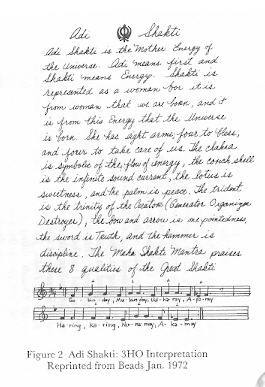 Adi Shakti
Adi Shakti is the Mother Energy of
the Universe. Adi means first and
Shakti means Energy. Shakti is
represented as a woman for it is
from woman that we are born, and it
is from this Energy that the Universe
is born. She has eight arms, four to bless,
and four to take care of us. The chakra
is symbolic of the flow of energy, the conch shell
is the infinite sound current, the lotus is
sweetness, and the palm is peace. The trident
is the trinity of the Creator (Generator Organizer
Destroyer), the bow and arrow is one pointedness,
the sword is Truth, and the hammer is
discipline. The Maha Shakti Mantra praises
these 8 qualities of the Great Shakti
Ha-ring, Ka-ring, Nir-na-may, A-ka-may
Figure 2 Adi Shakti: 3HO Interpretation
Reprinted from Beads Jan. 1972